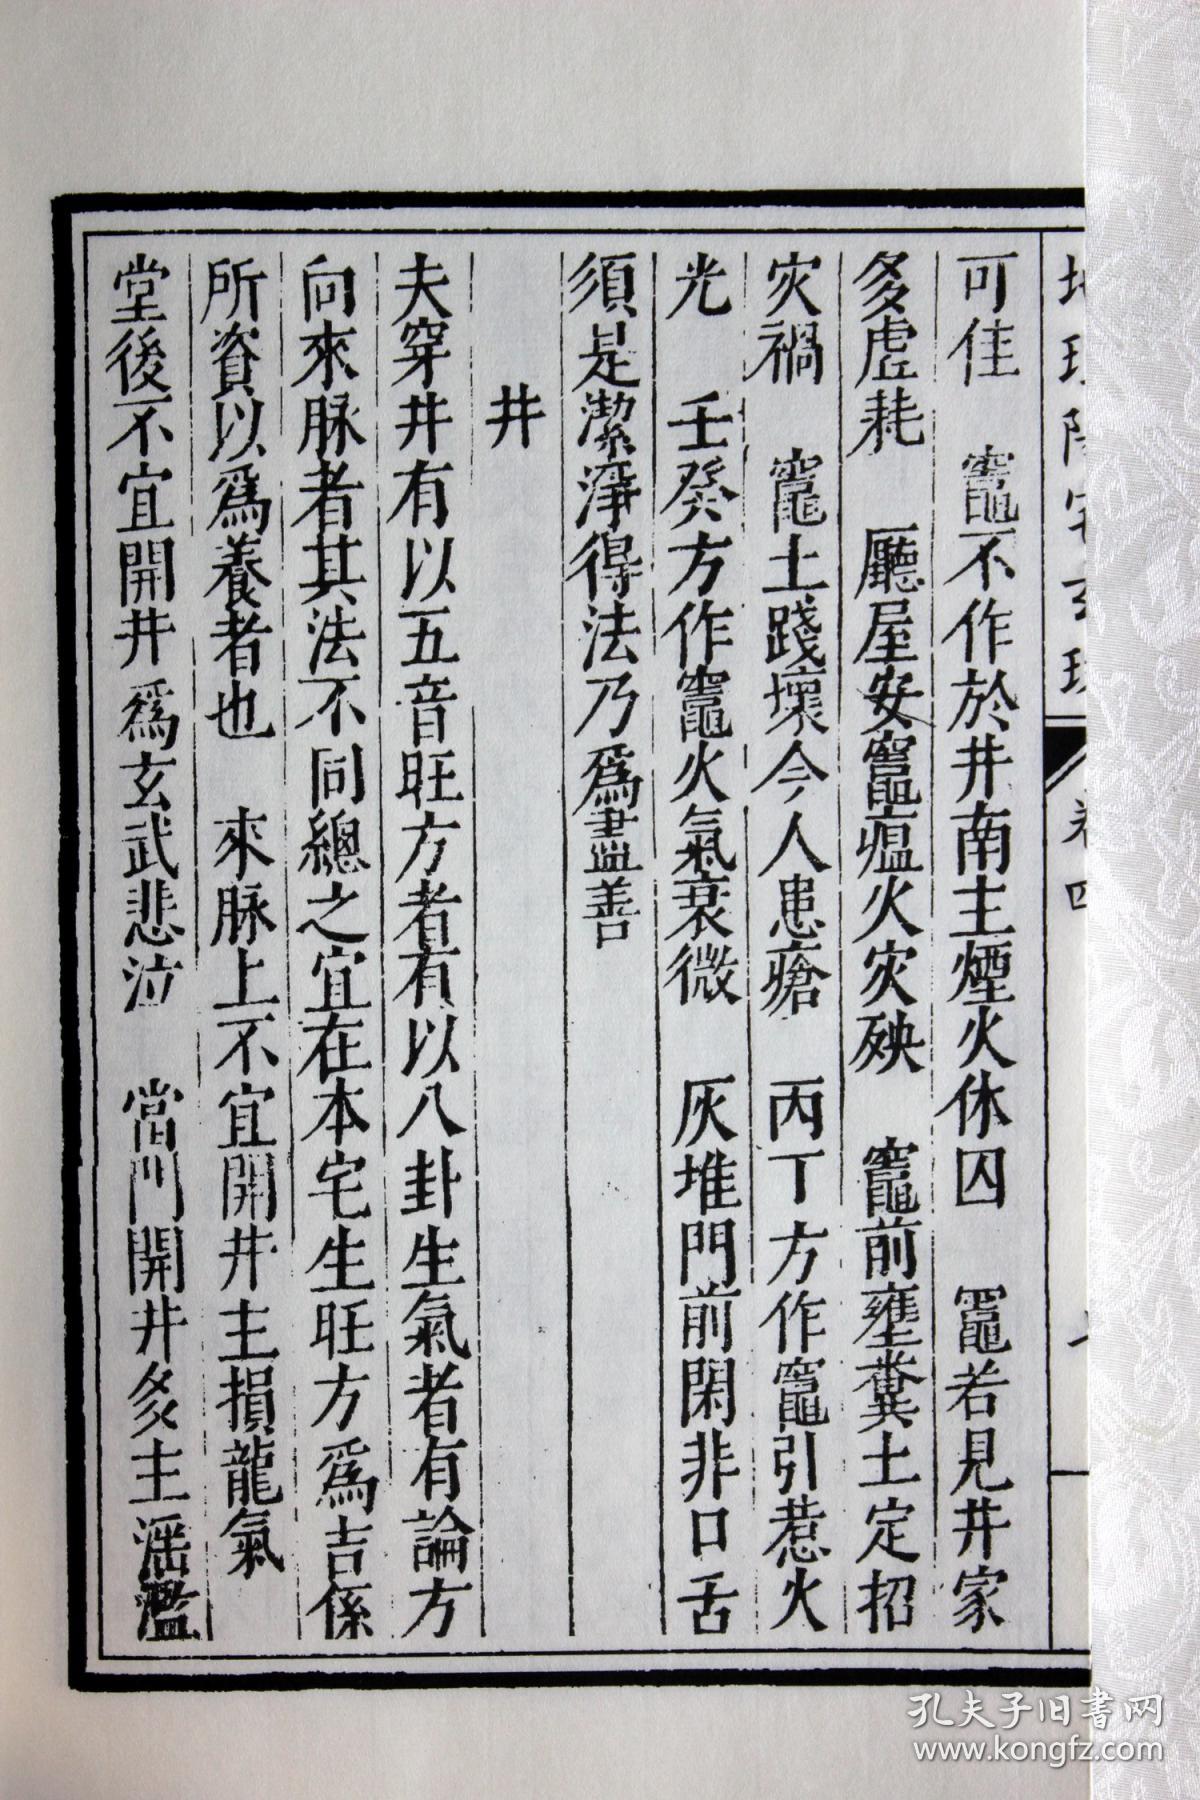 可佳　竈不作於井南主煙火休囚　竈若見井家
多虛耗　廳屋安竈瘟火灾殃　竈前壅糞土定招
灾禍　竈土踐壞令人患瘡　丙丁方作竈引惹火
光　壬癸方作竈火氣衰微　灰堆門前閑非口舌
須是潔淨得法乃爲盡善
井
夫穿井有以五音旺方者有以八卦生氣者有論方
向來脉者其法不同總之宜在本宅生旺方爲吉係
所資以爲養者也　來脉上不宜開井主損龍氣
堂後不宜開井爲玄武悲泣　當門開井多主淫濫
孔夫子旧书网
www.kongfz.com